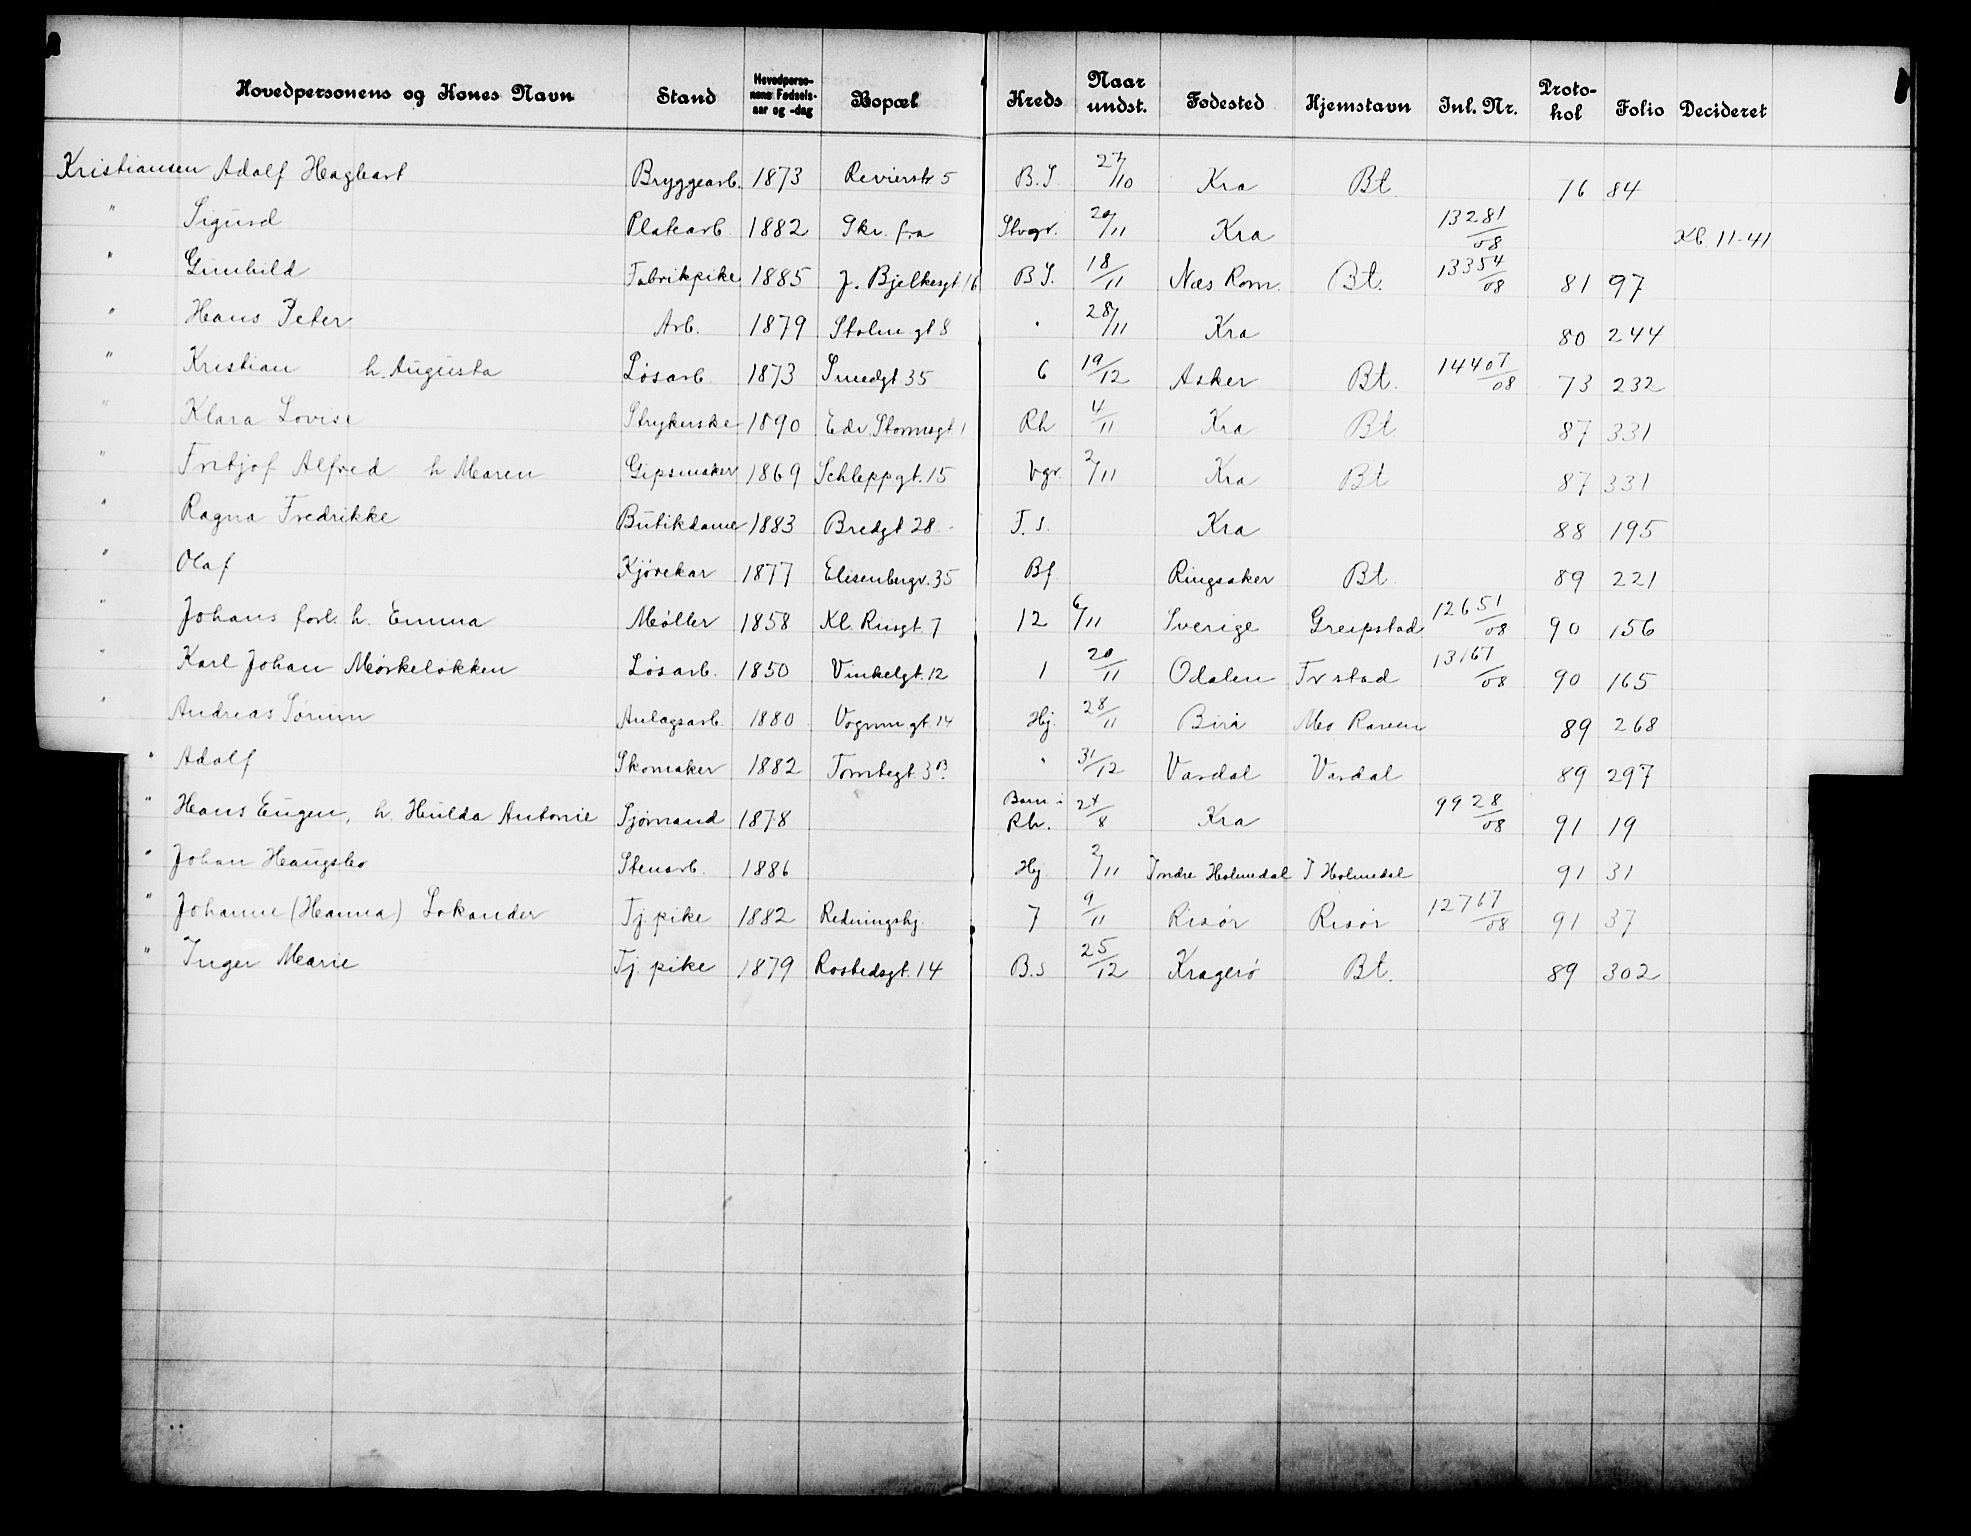 Hovedpersonens og Kones Navn Stand Hovedperso-nens Fødsels-aar og -dag Bopæl Kreds Naar undst. Fødested Hjemstavn Inl. Nr. Proto-kol Folio Decideret
Kristiansen Adolf Hagbart Bryggearb. 1873 Revierstr. 5 B.S. 27/10 Kra Bt 76 84
" Sigurd Platearb. 1882 Skr. fra Stvgr. 20/11 Kra 13281/08 Kb 11-41
" Gunhild Fabrikpike 1885 J. Bjelkesgt 16 B S. 18/11 Næs Rom. Bt. 13354/08 81 97
" Hans Peter Arb. 1879 Stolm gt 8 " 28/11 Kra 80 244
" Kristian h. Augusta Løsarb. 1873 Smedgt 35 6 19/12 Asker Bt. 14407/08 73 232
" Klara Lovise Strykerske 1890 Edv. Stormsgt 1 Rh 4/11 Kra Bt 87 331
" Fritjof Alfred h Maren Gipsmaker 1869 Schleppgt. 15 Vgr. 2/11 Kra Bt 87 331
" Ragna Fredrikke Butikdame 1883 Bredgt 28 F. s. Kra 88 195
" Olaf Kjørekar 1877 Elisenbergv. 35 Bf Ringsaker Bt 89 221
" Johans forl. h. Emma Møller 1858 Kl. Rusgt. 7 12 6/11 Sverige Greipstad 12651/08 90 156
" Karl Johan Mørkeløkken Løsarb. 1850 Vinkelgt. 12 1 20/11 Odalen Trstad 13167/08 90 165
" Andreas Sørum Anlagsarb. 1880 Vognmgt. 14 Hj. 28/11 Biri Mo Ranen 89 268
" Adolf Skomaker 1882 Tomtegt. 3 B. " 31/12 Vardal Vardal 89 297
" Hans Eugen, h. Hulda Antonie Sjømand 1878 Barn i Rh. 24/8 Kra 9928/08 91 19
" Johan Haugsbo Stenarb. 1886 Hj. 2/11 Indre Holmedal I Holmedal 91 31
" Johanne (Hanna) Lokander Tj. pike 1882 Redningshj. 7 9/11 Risør Risør 12767/08 91 37
" Inger Marie Tj. pike 1879 Rostedsgt. 14 B.s 25/12 Kragerø Bt. 89 302